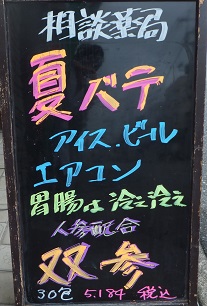 相談薬局
夏バテ
アイス.ビール
エアコン
胃腸は冷え冷え
人参配合
双参
30包 5,184 税込